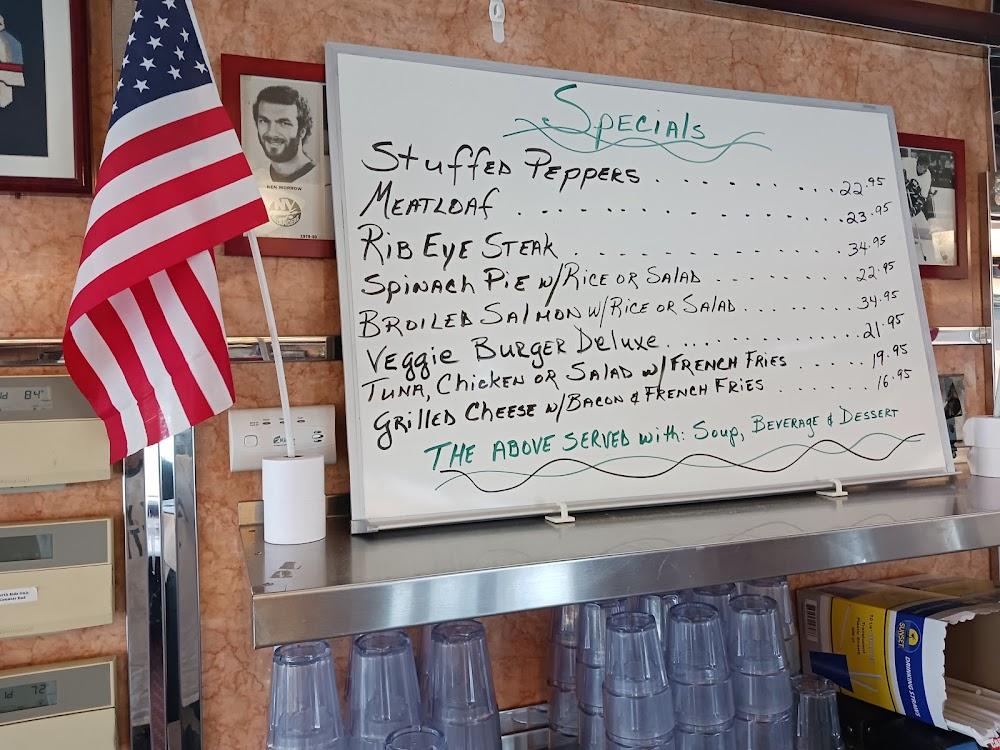 Specials
Stuffed Peppers . . . . . . . . . . 22.95
Meatloaf . . . . . . . . . . . . . . 23.95
Rib Eye Steak . . . . . . . . . . . . 34.95
Spinach Pie w/Rice or Salad . . . . . . . 22.95
Broiled Salmon w/Rice or Salad . . . . . . 34.95
Veggie Burger Deluxe . . . . . . . . . . . 21.95
Tuna, Chicken or Salad w/French Fries . . . . . 19.95
Grilled Cheese w/Bacon & French Fries . . . . . 16.95
The above served with: Soup, Beverage & Dessert
KEN MORROW
NY
1979-80
84°
72
SUNSET
DRINKING STRAWS